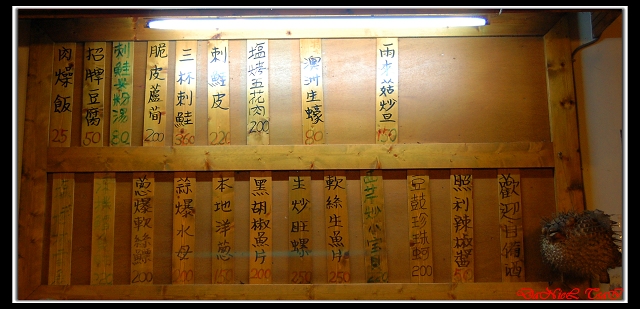 肉燥飯 25
招牌豆腐 50
刺鮭米粉湯 80
脆皮蘆筍 200
三杯刺鮭 360
刺鮭皮 220
塩烤五花肉 200
澳洲生蠔 80
雨來菇炒旦 150
蔥爆軟絲 200
蒜爆水母 100
本地洋蔥 150
黑胡椒魚片 200
生炒旺螺 250
軟絲生魚片 250
豆鼓珍珠蚵 200
照利辣椒醬 50
歡迎自備酒